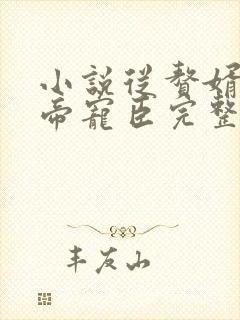 小說從贅婿
帝寵臣完整
丰友山